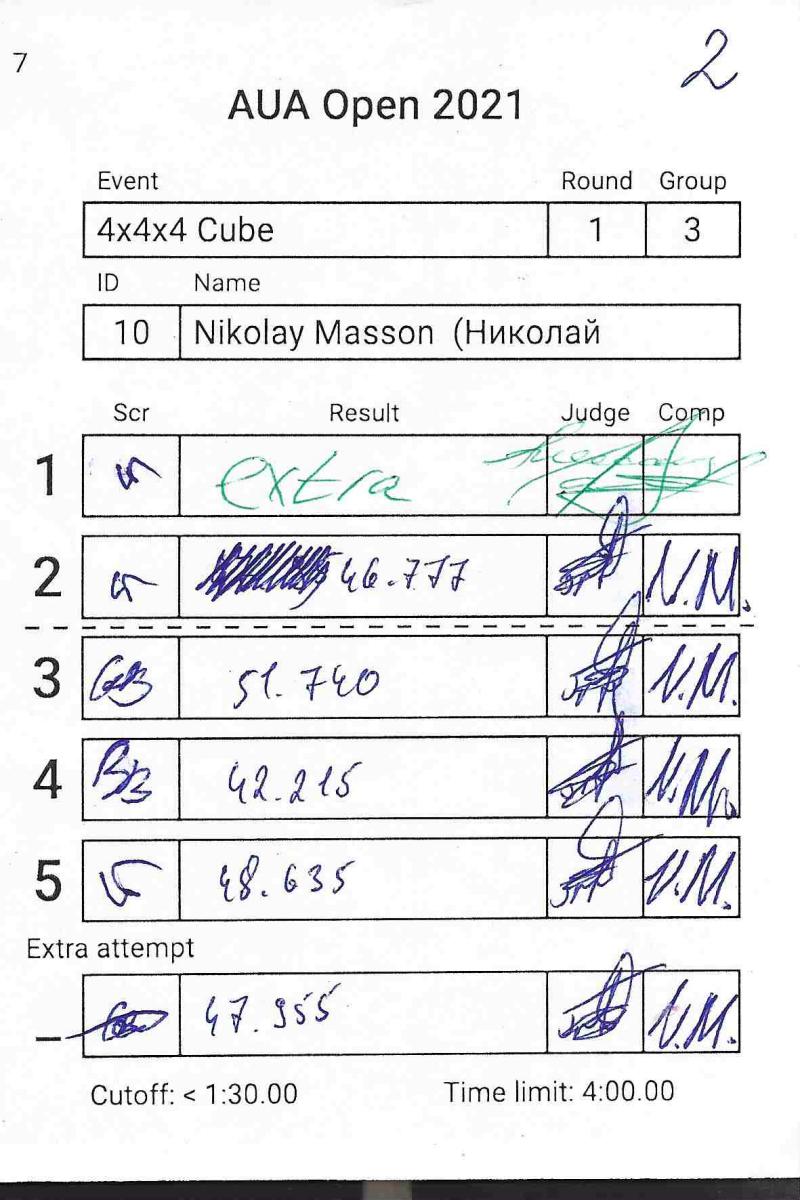 7
2
AUA Open 2021
Event Round Group
4x4x4 Cube 1 3
ID Name
10 Nikolay Masson (Николай
Scr Result Judge Comp
1 extra
2 46.777 N.M.
3 51.740 N.M.
4 42.215 N.M.
5 48.635 N.M.
Extra attempt
_ 47.955 N.M.
Cutoff: < 1:30.00 Time limit: 4:00.00